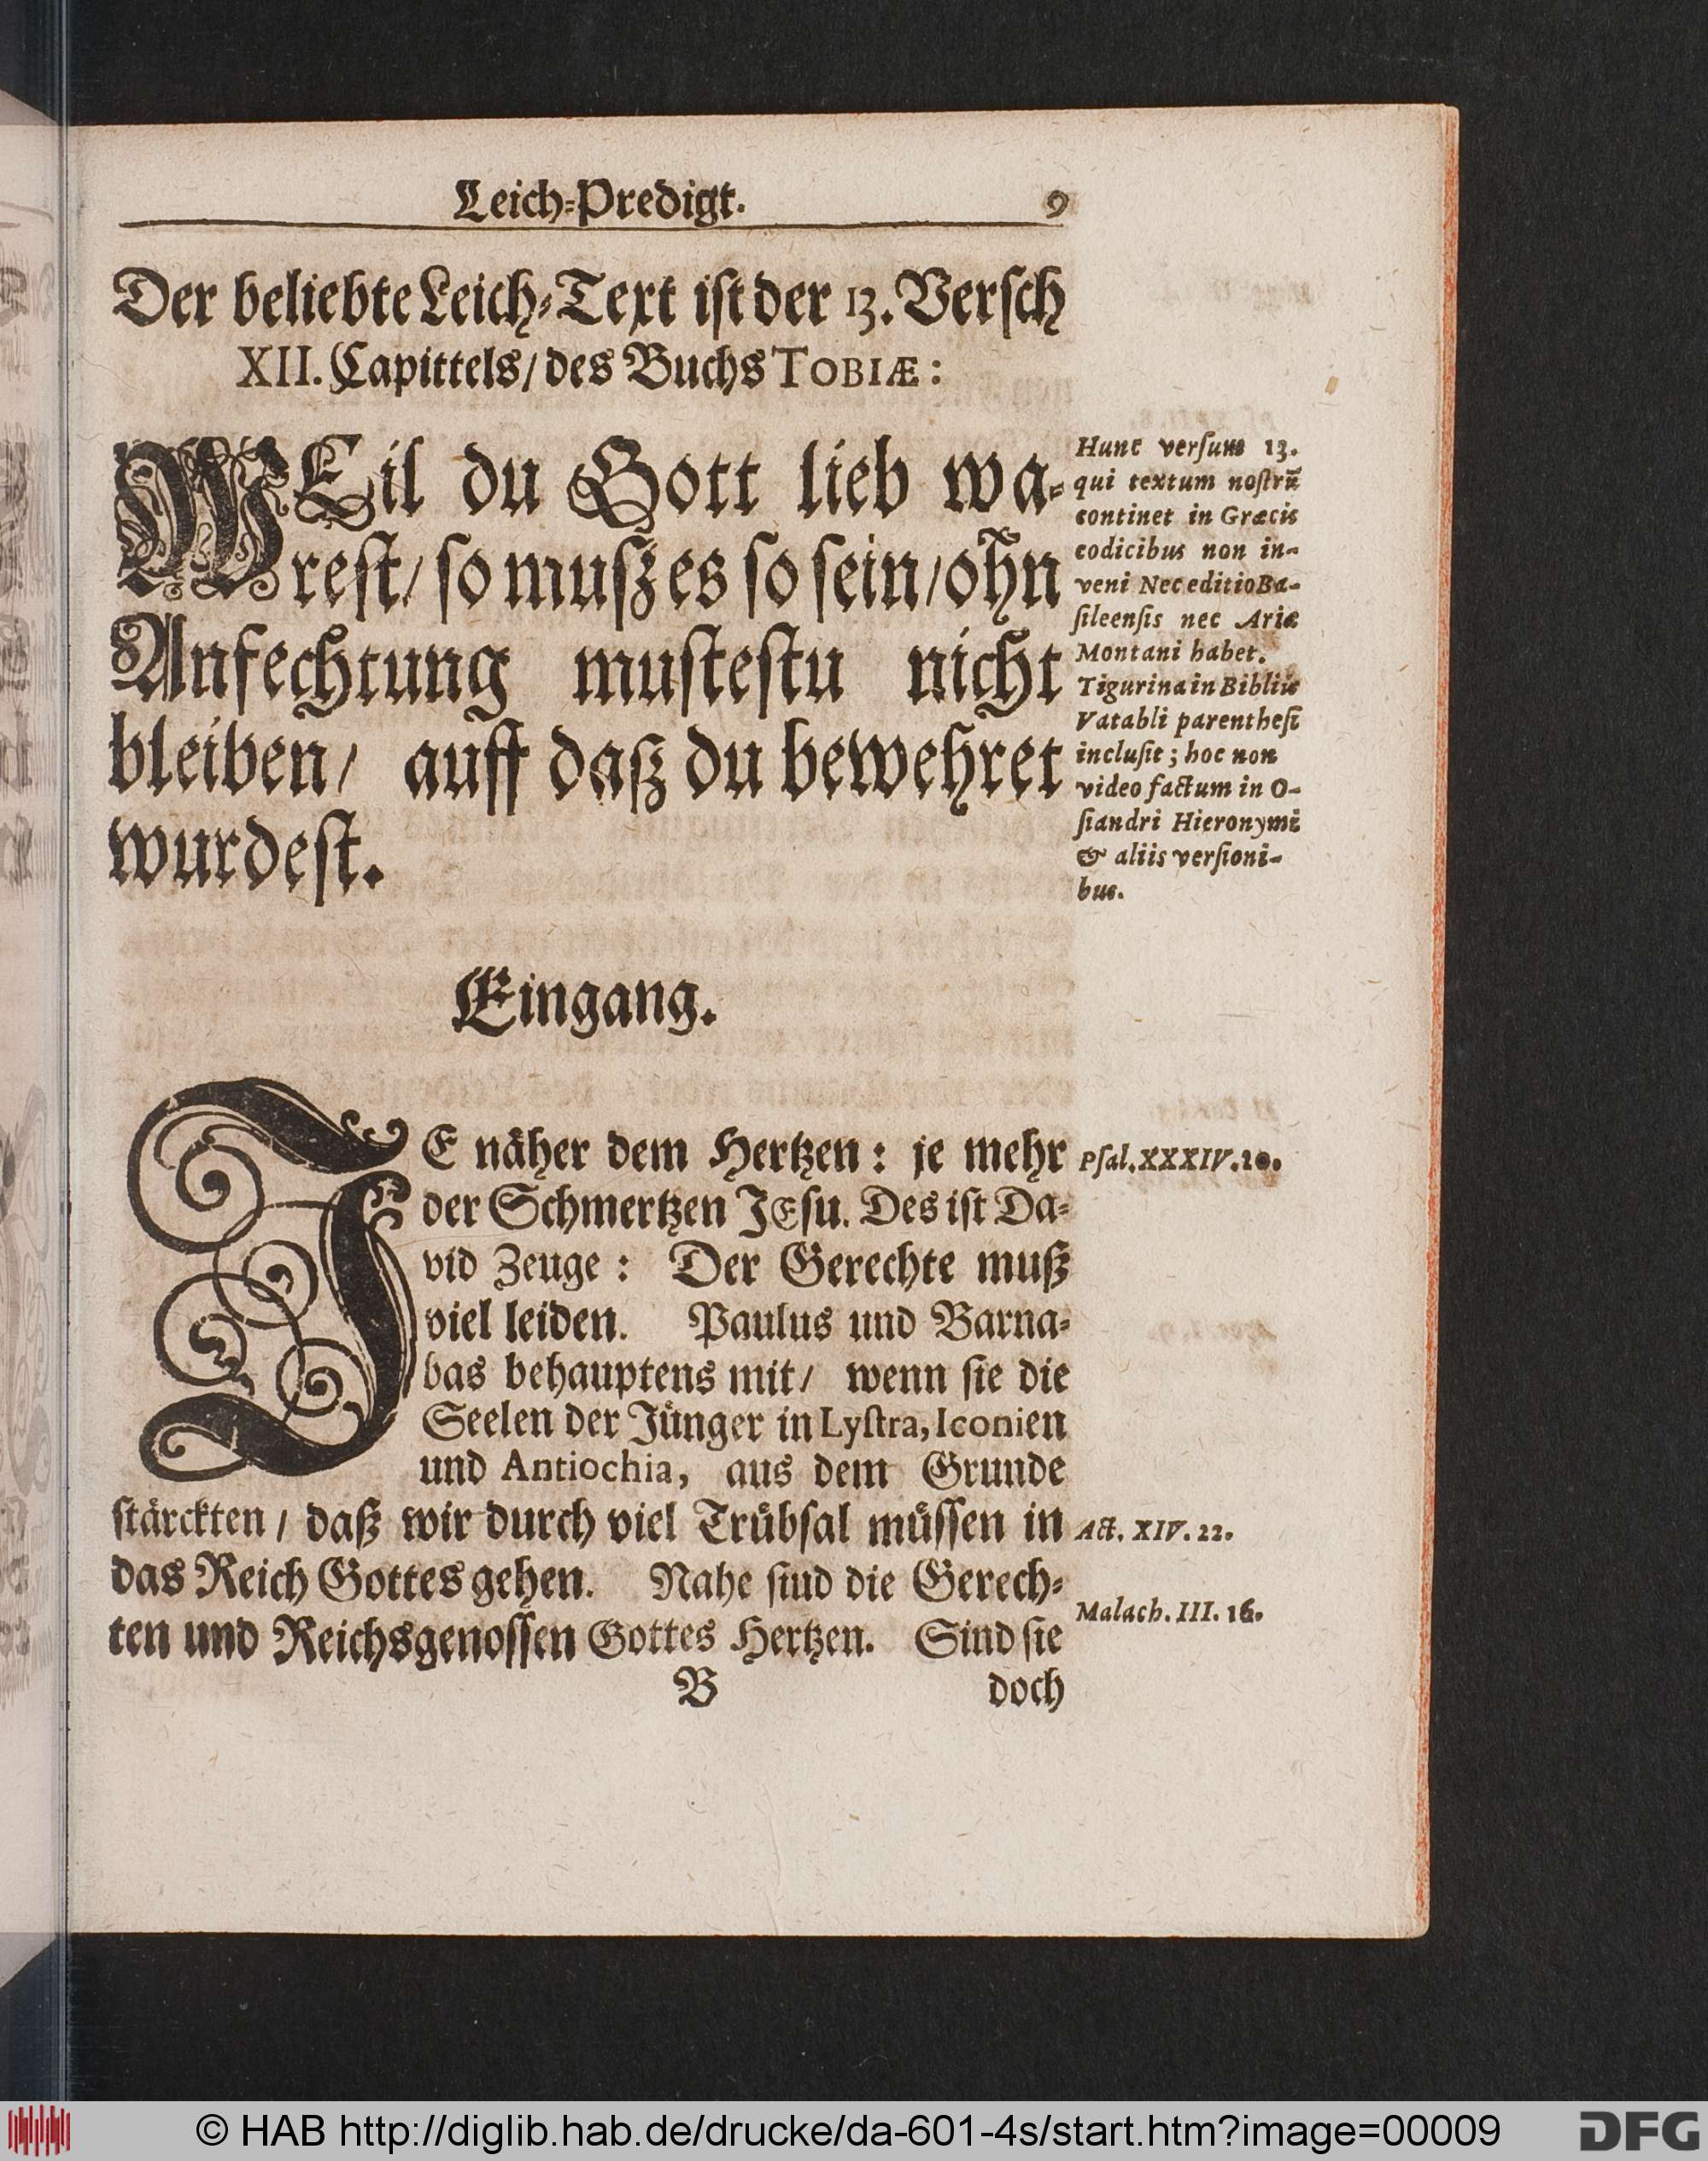 Leich-Predigt. 9
Der beliebte Leich-Text ist der 13. Versch
XII. Capittels/ des Buchs TOBIÆ:
WEil du Gott lieb wa-
rest/ so muß es so sein/ ohn
Anfechtung mustestu nicht
bleiben/ auff daß du bewehret
wurdest.
Hunc versum 13.
qui textum nostrũ
continet in Græcis
codicibus non in-
veni Nec editio Ba-
sileensis nec Ariæ
Montani habet.
Tigurina in Bibliis
Vatabli parenthesi
inclusit; hoc non
video factum in O-
siandri Hieronymi
& aliis versioni-
bus.
Eingang.
JE näher dem Hertzen: je mehr
der Schmertzen JEsu. Des ist Da-
vid Zeuge: Der Gerechte muß
viel leiden. Paulus und Barna-
bas behauptens mit/ wenn sie die
Seelen der Jünger in Lystra, Iconien
und Antiochia, aus dem Grunde
stärckten/ daß wir durch viel Trübsal müssen in
das Reich Gottes gehen. Nahe sind die Gerech-
ten und Reichsgenossen Gottes Hertzen. Sind sie
B doch
Psal. XXXIV. 20.
Act. XIV. 22.
Malach. III. 16.
© HAB http://diglib.hab.de/drucke/da-601-4s/start.htm?image=00009
DFG